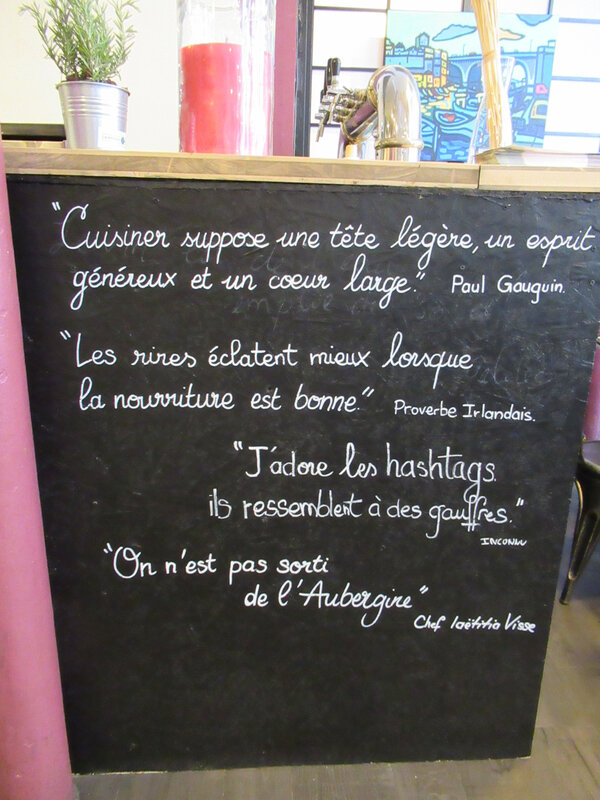 "Cuisiner suppose une tête légère, un esprit
généreux et un coeur large." Paul Gauguin.
"Les rires éclatent mieux lorsque
la nourriture est bonne." Proverbe Irlandais.
"J'adore les hashtags
ils ressemblent à des gauffres."
INCONNU
"On n'est pas sorti
de l'Aubergine"
Chef laëtitia Visse